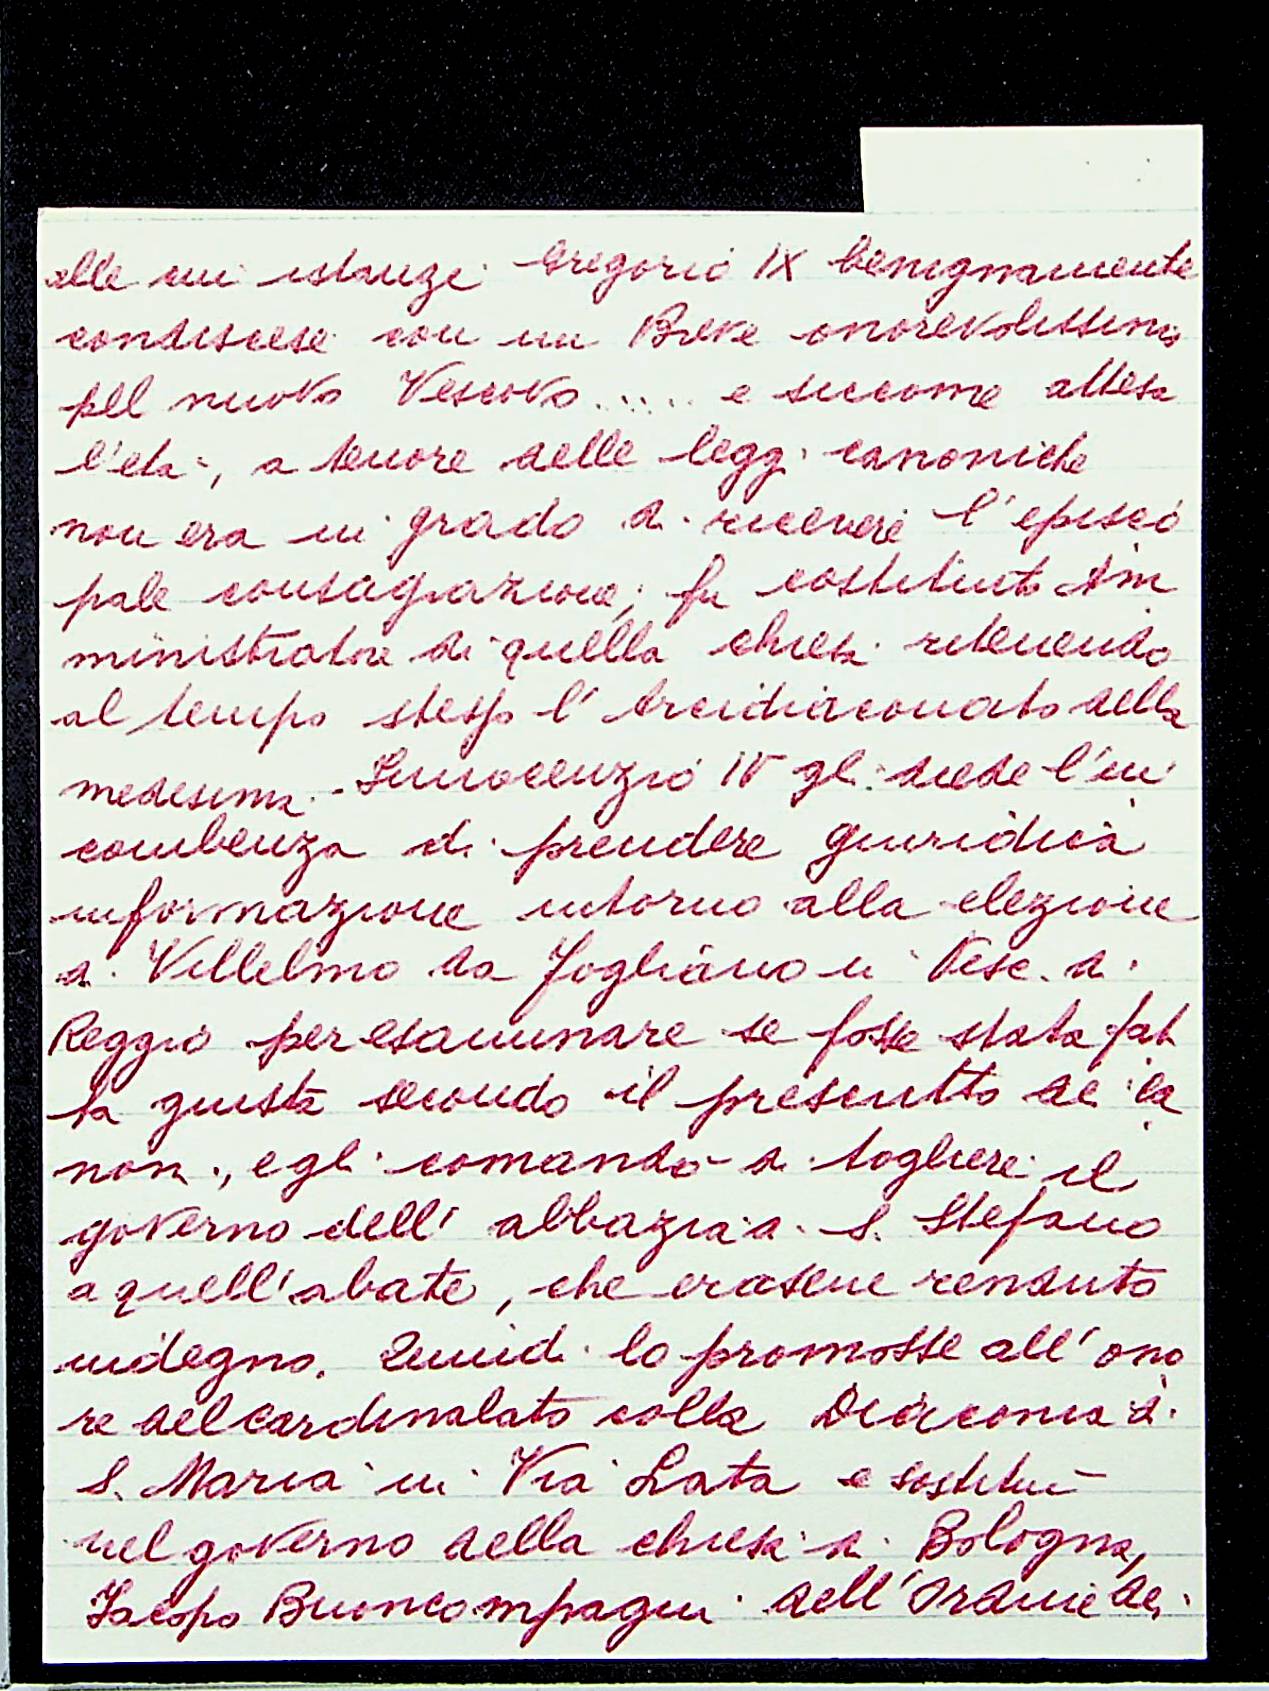 alle cui istanze Gregorio IX benignamente
condiscese con un Breve onorevolissimo
pel nuovo Vescovo ..... e siccome attesa
l'età, a tenore delle leggi canoniche
non era in grado di ricevere l'episco
pale consagrazione, fu costituito Am
ministratore di quella chiesa ritenendo
al tempo stesso l'Arcidiaconato della
medesima. - Innocenzio IV gli diede l'in
combenza di prendere giuridica
informazione intorno alla elezione
di Villelmo da Fogliano in Vesc. di
Reggio per esaminare se fosse stata fat
ta giusta secondo il prescritto dei ca
noni, e gli comandò di togliere il
governo dell'abbazia di S. Stefano
a quell'abate, che erasene renduto
indegno. Quindi lo promosse all'ono
re del cardinalato colla Diaconia di
S. Maria in Via Lata e sostituì
nel governo della chiesa di Bologna,
Jacopo Buoncompagni dell'Ordine dei